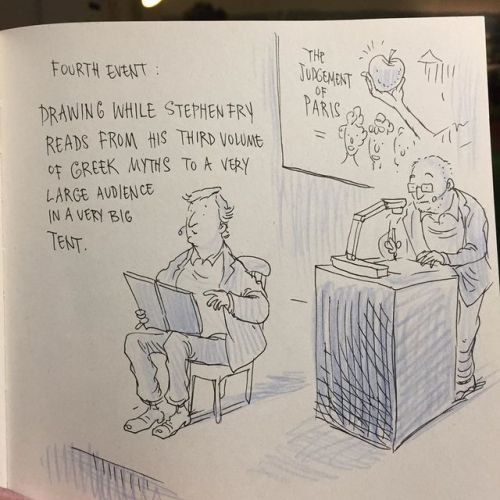 FOURTH EVENT :
DRAWING WHILE STEPHEN FRY
READS FROM HIS THIRD VOLUME
OF GREEK MYTHS TO A VERY
LARGE AUDIENCE
IN A VERY BIG
TENT.
THE
JUDGEMENT
OF
PARIS